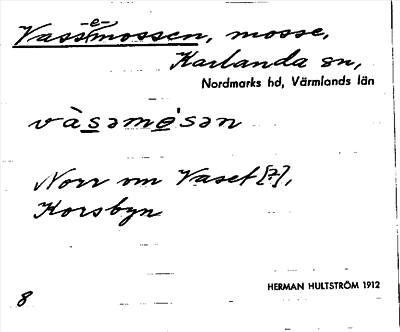 -e-
Vassmossen, mosse,
Karlanda sn,
Nordmarks hd, Värmlands län
và sǝmȯ́sǝn
Norr om Vaset [7],
Korsbyn
HERMAN HULTSTRÖM 1912
8